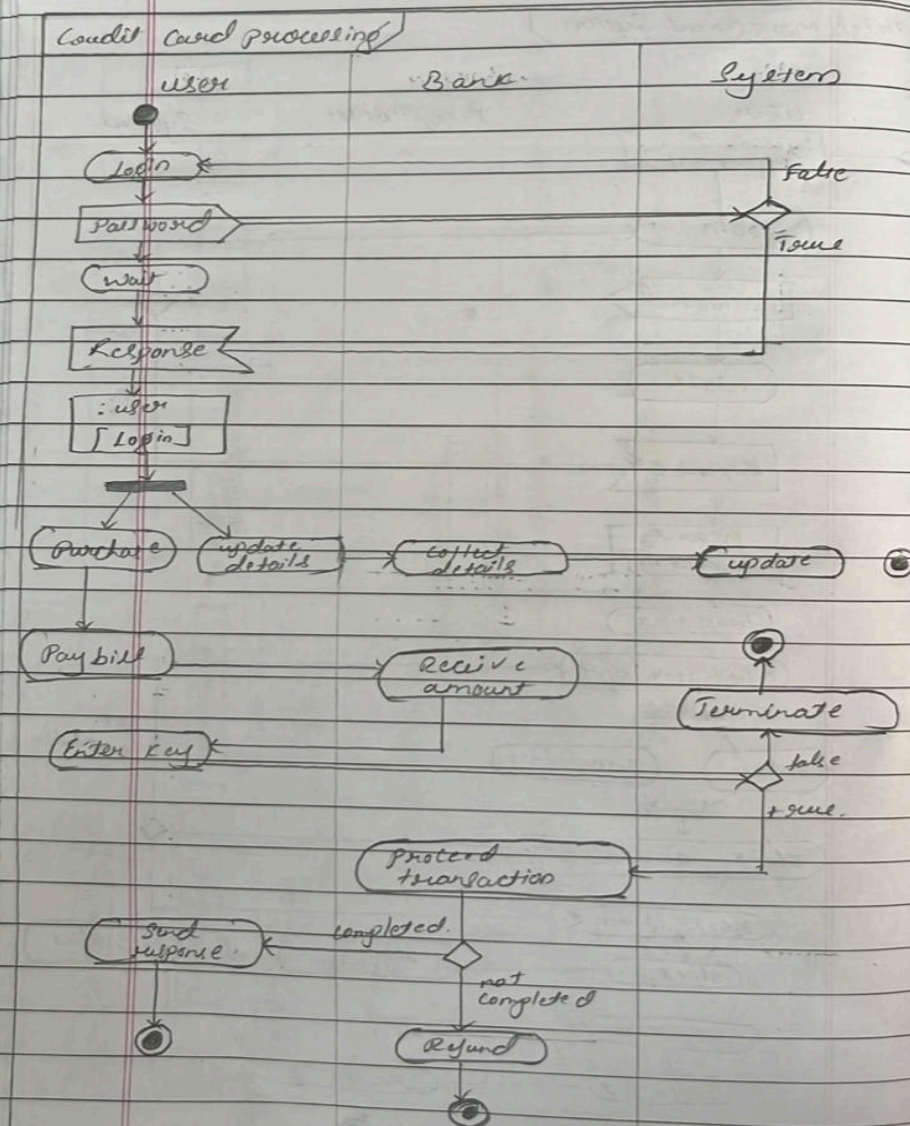 Credit Card processing
user
Bank
System
Login
False
Password
True
wait
Response
: user
[Login]
Purchase
update
details
collect
details
update
Pay bill
Receive
amount
Terminate
Enter key
false
true.
Proceed
transaction
completed.
Send
response.
not
completed
Refund